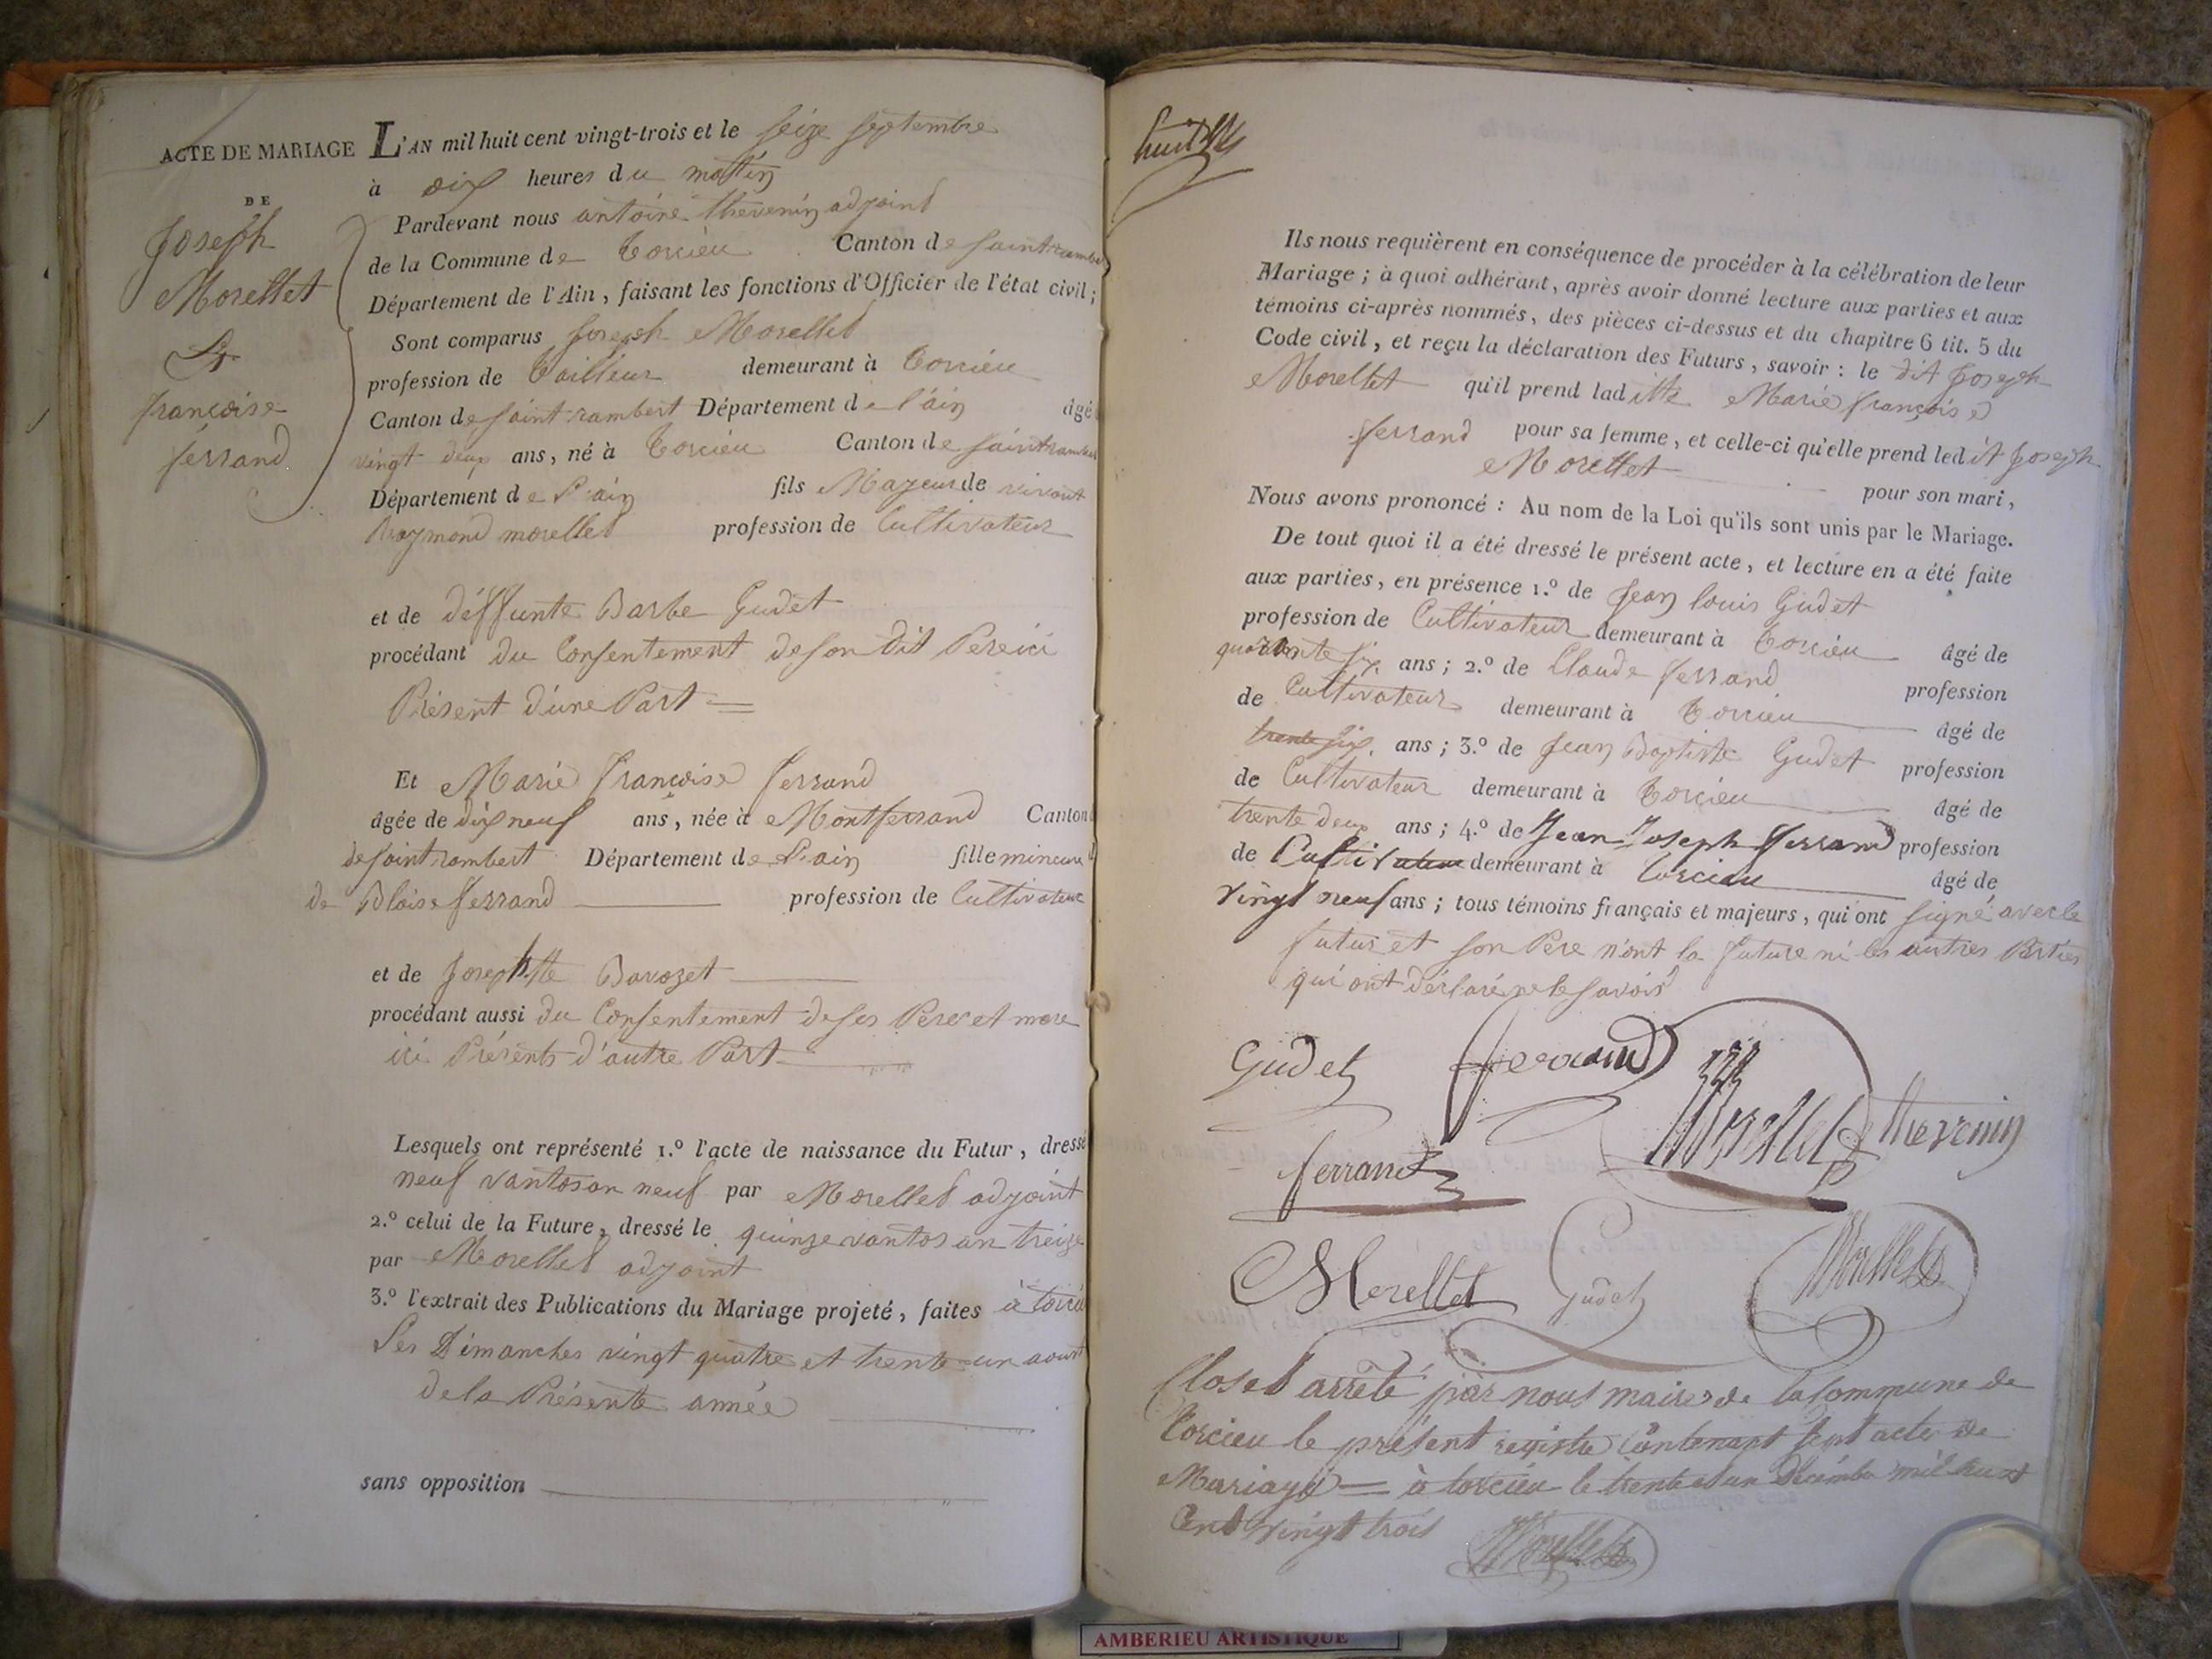 ACTE DE MARIAGE
DE
Joseph
Morellet
&
francoise
ferrand
L'AN mil huit cent vingt-trois et le seize septembre
à dix heures du matin
Pardevant nous antoine thevenin adjoint
de la Commune de torcieu Canton de saint rambert
Département de l'Ain, faisant les fonctions d'Officier de l'état civil;
Sont comparus joseph Morellet
profession de tailleur demeurant à torcieu
Canton de saint rambert Département de l'ain âgé
vingt deux ans, né à torcieu Canton de saint rambert
Département de l'ain fils Majeur de vivant
Raymond morellet profession de Cultivateur
et de déffunte Barbe Gudet
procédant du Consentement de son dit Pere ici
Présent d'une Part =
Et Marie françoise ferrand
âgée de dix neuf ans, née à Montferrand Canton
de saint rambert Département de l'ain fille mineure
de Blaise ferrand profession de Cultivateur
et de Josephte Bavozet
procédant aussi du Consentement de ses Pere et mere
ici Présents d'autre Part
Lesquels ont représenté 1.º l'acte de naissance du Futur, dressé
neuf vantos an neuf par Morellet adjoint
2.º celui de la Future, dressé le quinze vantos an treize
par Morellet adjoint
3.º l'extrait des Publications du Mariage projeté, faites à torcieu
Les Dimanches vingt quatre et trente un aoust
de la Présente année
sans opposition
Ils nous requièrent en conséquence de procéder à la célébration de leur
Mariage; à quoi adhérant, après avoir donné lecture aux parties et aux
témoins ci-après nommés, des pièces ci-dessus et du chapitre 6 tit. 5 du
Code civil, et reçu la déclaration des Futurs, savoir: le dit Joseph
Morellet qu'il prend laditte Marie françoise
ferrand pour sa femme, et celle-ci qu'elle prend ledit Joseph
Morellet pour son mari,
Nous avons prononcé: Au nom de la Loi qu'ils sont unis par le Mariage.
De tout quoi il a été dressé le présent acte, et lecture en a été faite
aux parties, en présence 1.º de Jean louis Gudet
profession de Cultivateur demeurant à torcieu âgé de
quarante six ans; 2.º de Claude ferrand profession
de Cultivateur demeurant à torcieu âgé de
trente six ans; 3.º de Jean Baptiste Gudet profession
de Cultivateur demeurant à torcieu âgé de
trente deux ans; 4.º de Jean Joseph ferrand profession
de Cultivateur demeurant à torcieu âgé de
vingt neuf ans; tous témoins français et majeurs, qui ont signé avec le
futur et son Pere n'ont la future ni les autres Parties
qui ont déclaré ne le savoir
Gudet ferrand Morellet thevenin
ferrand
Morellet Gudet Morellet
Clos et arrêté par nous maire de la Commune de
torcieu le présent registre Contenant sept actes de
Mariage = à torcieu le trente un Décembre mil huit
Cent vingt trois Morellet
AMBERIEU ARTISTIQUE